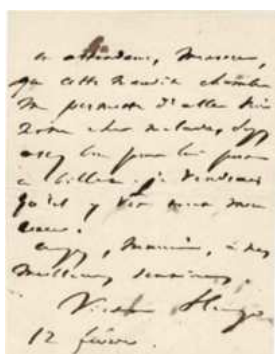 en attendant, Monsieur,
que cette maudite chambre
me permette d'aller voir
notre cher malade, soyez
assez bon pour lui
ce billet. je voudrais
qu'il y vit mon
cœur.
Monsieur, à mes
meilleurs sentiments
Victor Hugo
12 février